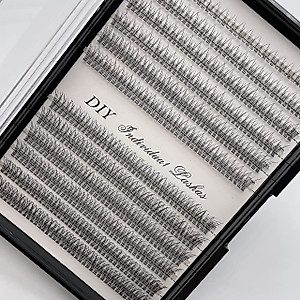 DIY
Individual Lashas